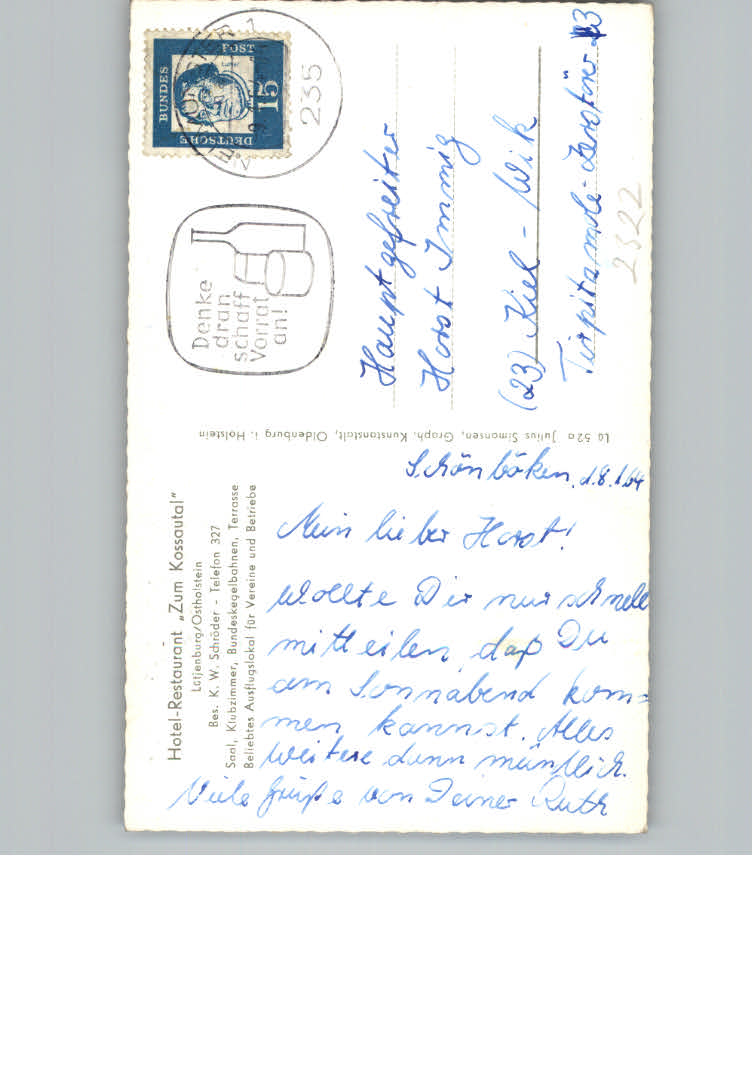 Hotel-Restaurant „Zum Kossautal"
Lütjenburg/Ostholstein
Bes. K. W. Schröder - Telefon 327
Saal, Klubzimmer, Bundeskegelbahnen, Terrasse
Beliebtes Ausflugslokal für Vereine und Betriebe
Schönböken, d. 8. 1. 64
Mein lieber Horst!
Wollte Dir nur schnell
mitteilen, daß Du
am Sonnabend kom=
men kannst. Alles
weitere dann mündlich.
Viele Grüße von Deiner Ruth
Lü 52a Julius Simonsen, Graph. Kunstanstalt, Oldenburg i. Holstein
DEUTSCHE
BUNDES
POST
15
235
1
Denke
dran
schaff
Vorrat
an!
Hauptgefreiter
Horst Immig
(23) Kiel - Wik
Tirpitzmole
2322